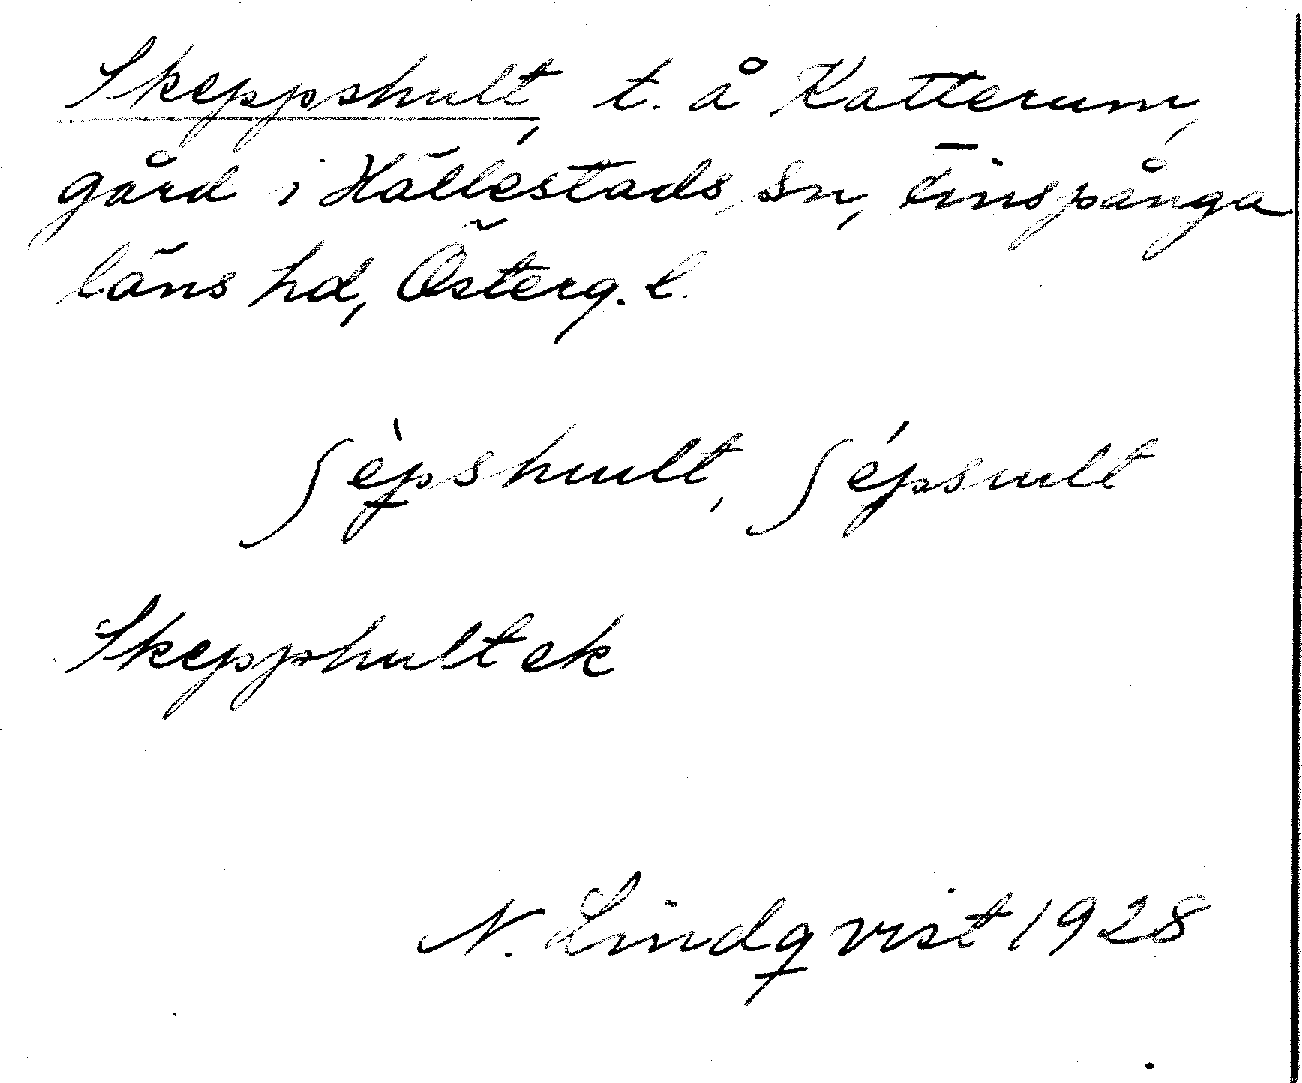 Skeppshult, t. å Katterum,
gård i Hällestads sn, Finspånga
läns hd, Österg. l.
ʃèpshult, ʃépsult
Skepphult ek
N. Lindqvist 1928